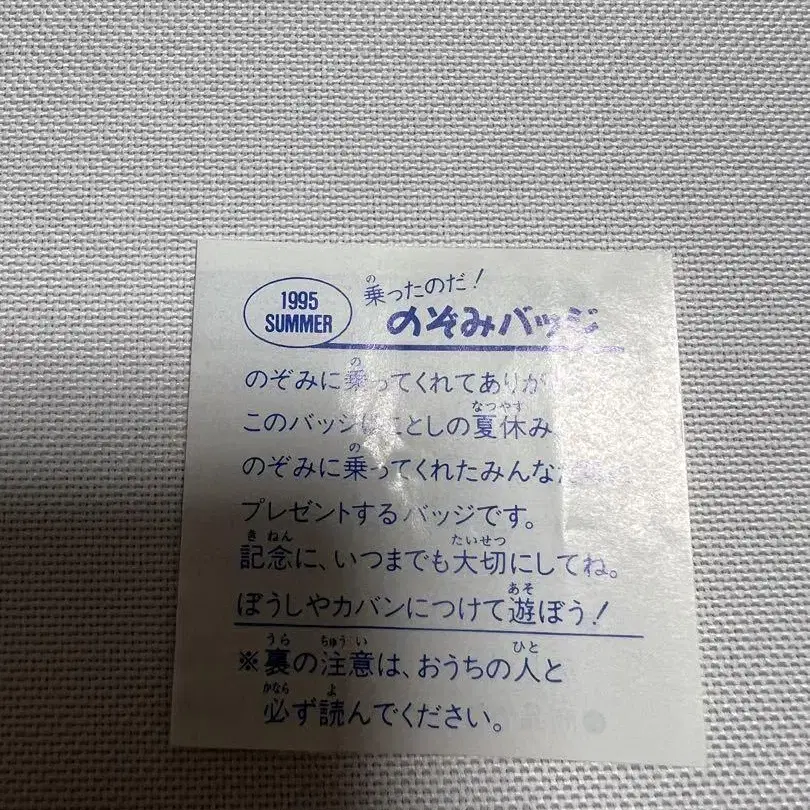 1995
SUMMER
乗ったのだ!
のぞみバッジ
のぞみに乗ってくれてありが
このバッジは ことしの夏休み
のぞみに乗ってくれたみんな
プレゼントするバッジです。
記念に、いつまでも大切にしてね。
ぼうしやカバンにつけて遊ぼう!
※裏の注意は、おうちの人と
必ず読んでください。